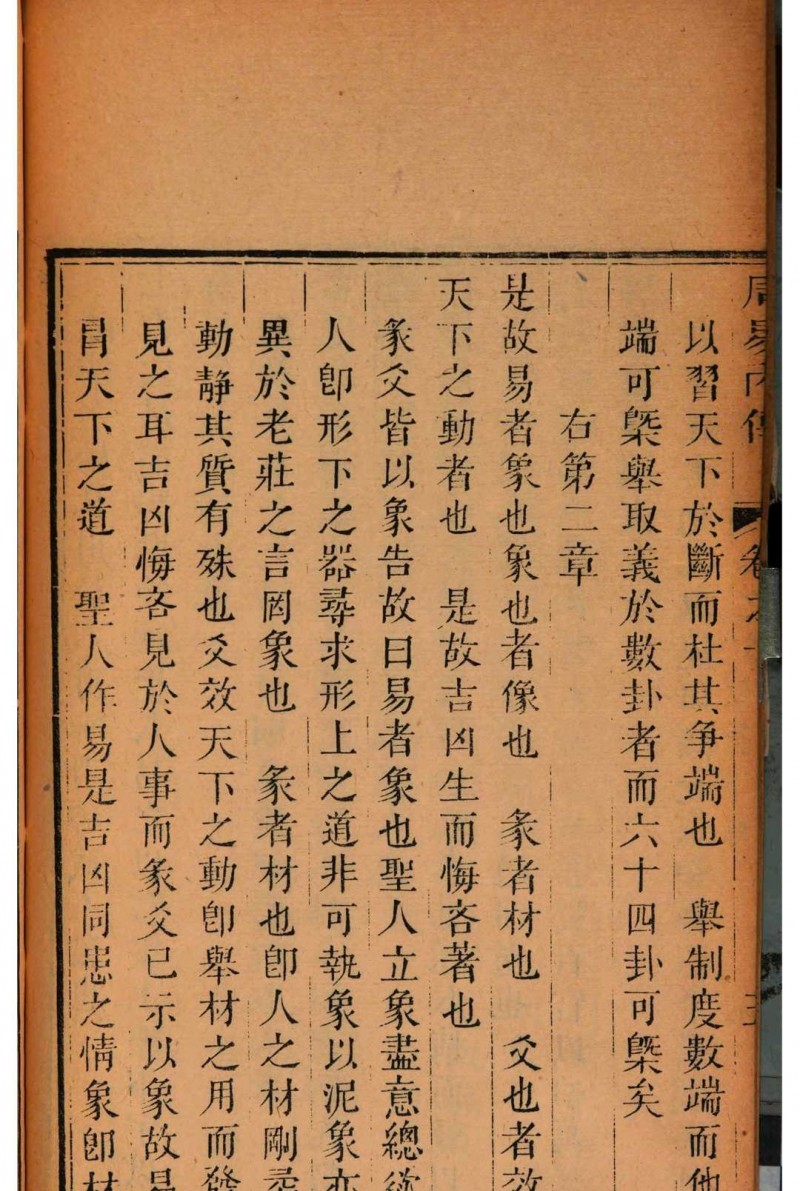 周易內傳 卷之
以習天下於斷而杜其争端也 舉制度數端而他
端可槩舉取義於數卦者而六十四卦可槩矣
右第二章
是故易者象也象也者像也 彖者材也 爻也者效
天下之動者也 是故吉凶生而悔吝著也
彖爻皆以象告故曰易者象也聖人立象盡意總欲
人卽形下之器尋求形上之道非可執象以泥象亦
異於老莊之言罔象也 彖者材也卽人之材剛柔
動靜其質有殊也爻效天下之動卽舉材之用而發
見之耳吉凶悔吝見於人事而彖爻已示以象故易
冐天下之道 聖人作易是吉凶同患之情象卽材